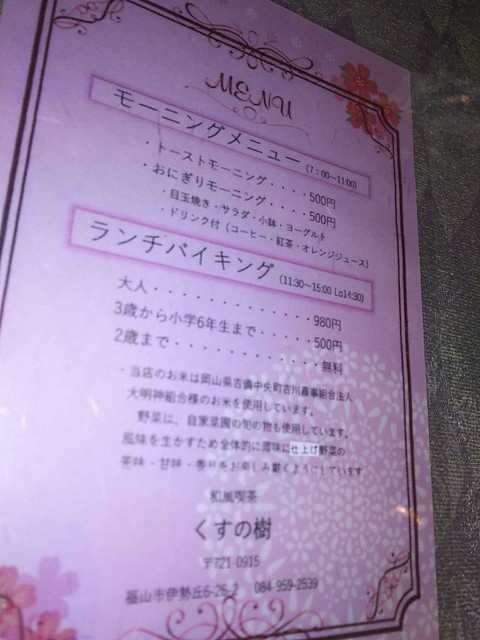 MENU
モーニングメニュー (7:00~11:00)
・トーストモーニング・・・・500円
・おにぎりモーニング・・・・500円
・目玉焼き・サラダ・小鉢・ヨーグルト
・ドリンク付(コーヒー・紅茶・オレンジジュース)
ランチバイキング (11:30~15:00 Lo14:30)
大人・・・・・・・・・・・・980円
3歳から小学6年生まで・・・・・500円
2歳まで・・・・・・・・・・・・無料
・当店のお米は岡山県吉備中央町吉川農事組合法人
大明神組合様のお米を使用しています。
野菜は、自家菜園の旬の物も使用しています。
風味を生かすため全体的に薄味に仕上げ野菜の
苦味・甘味・香りをお楽しみ頂くようにしています
和風喫茶
くすの樹
〒721-0915
福山市伊勢丘6-26-2 084-959-2539